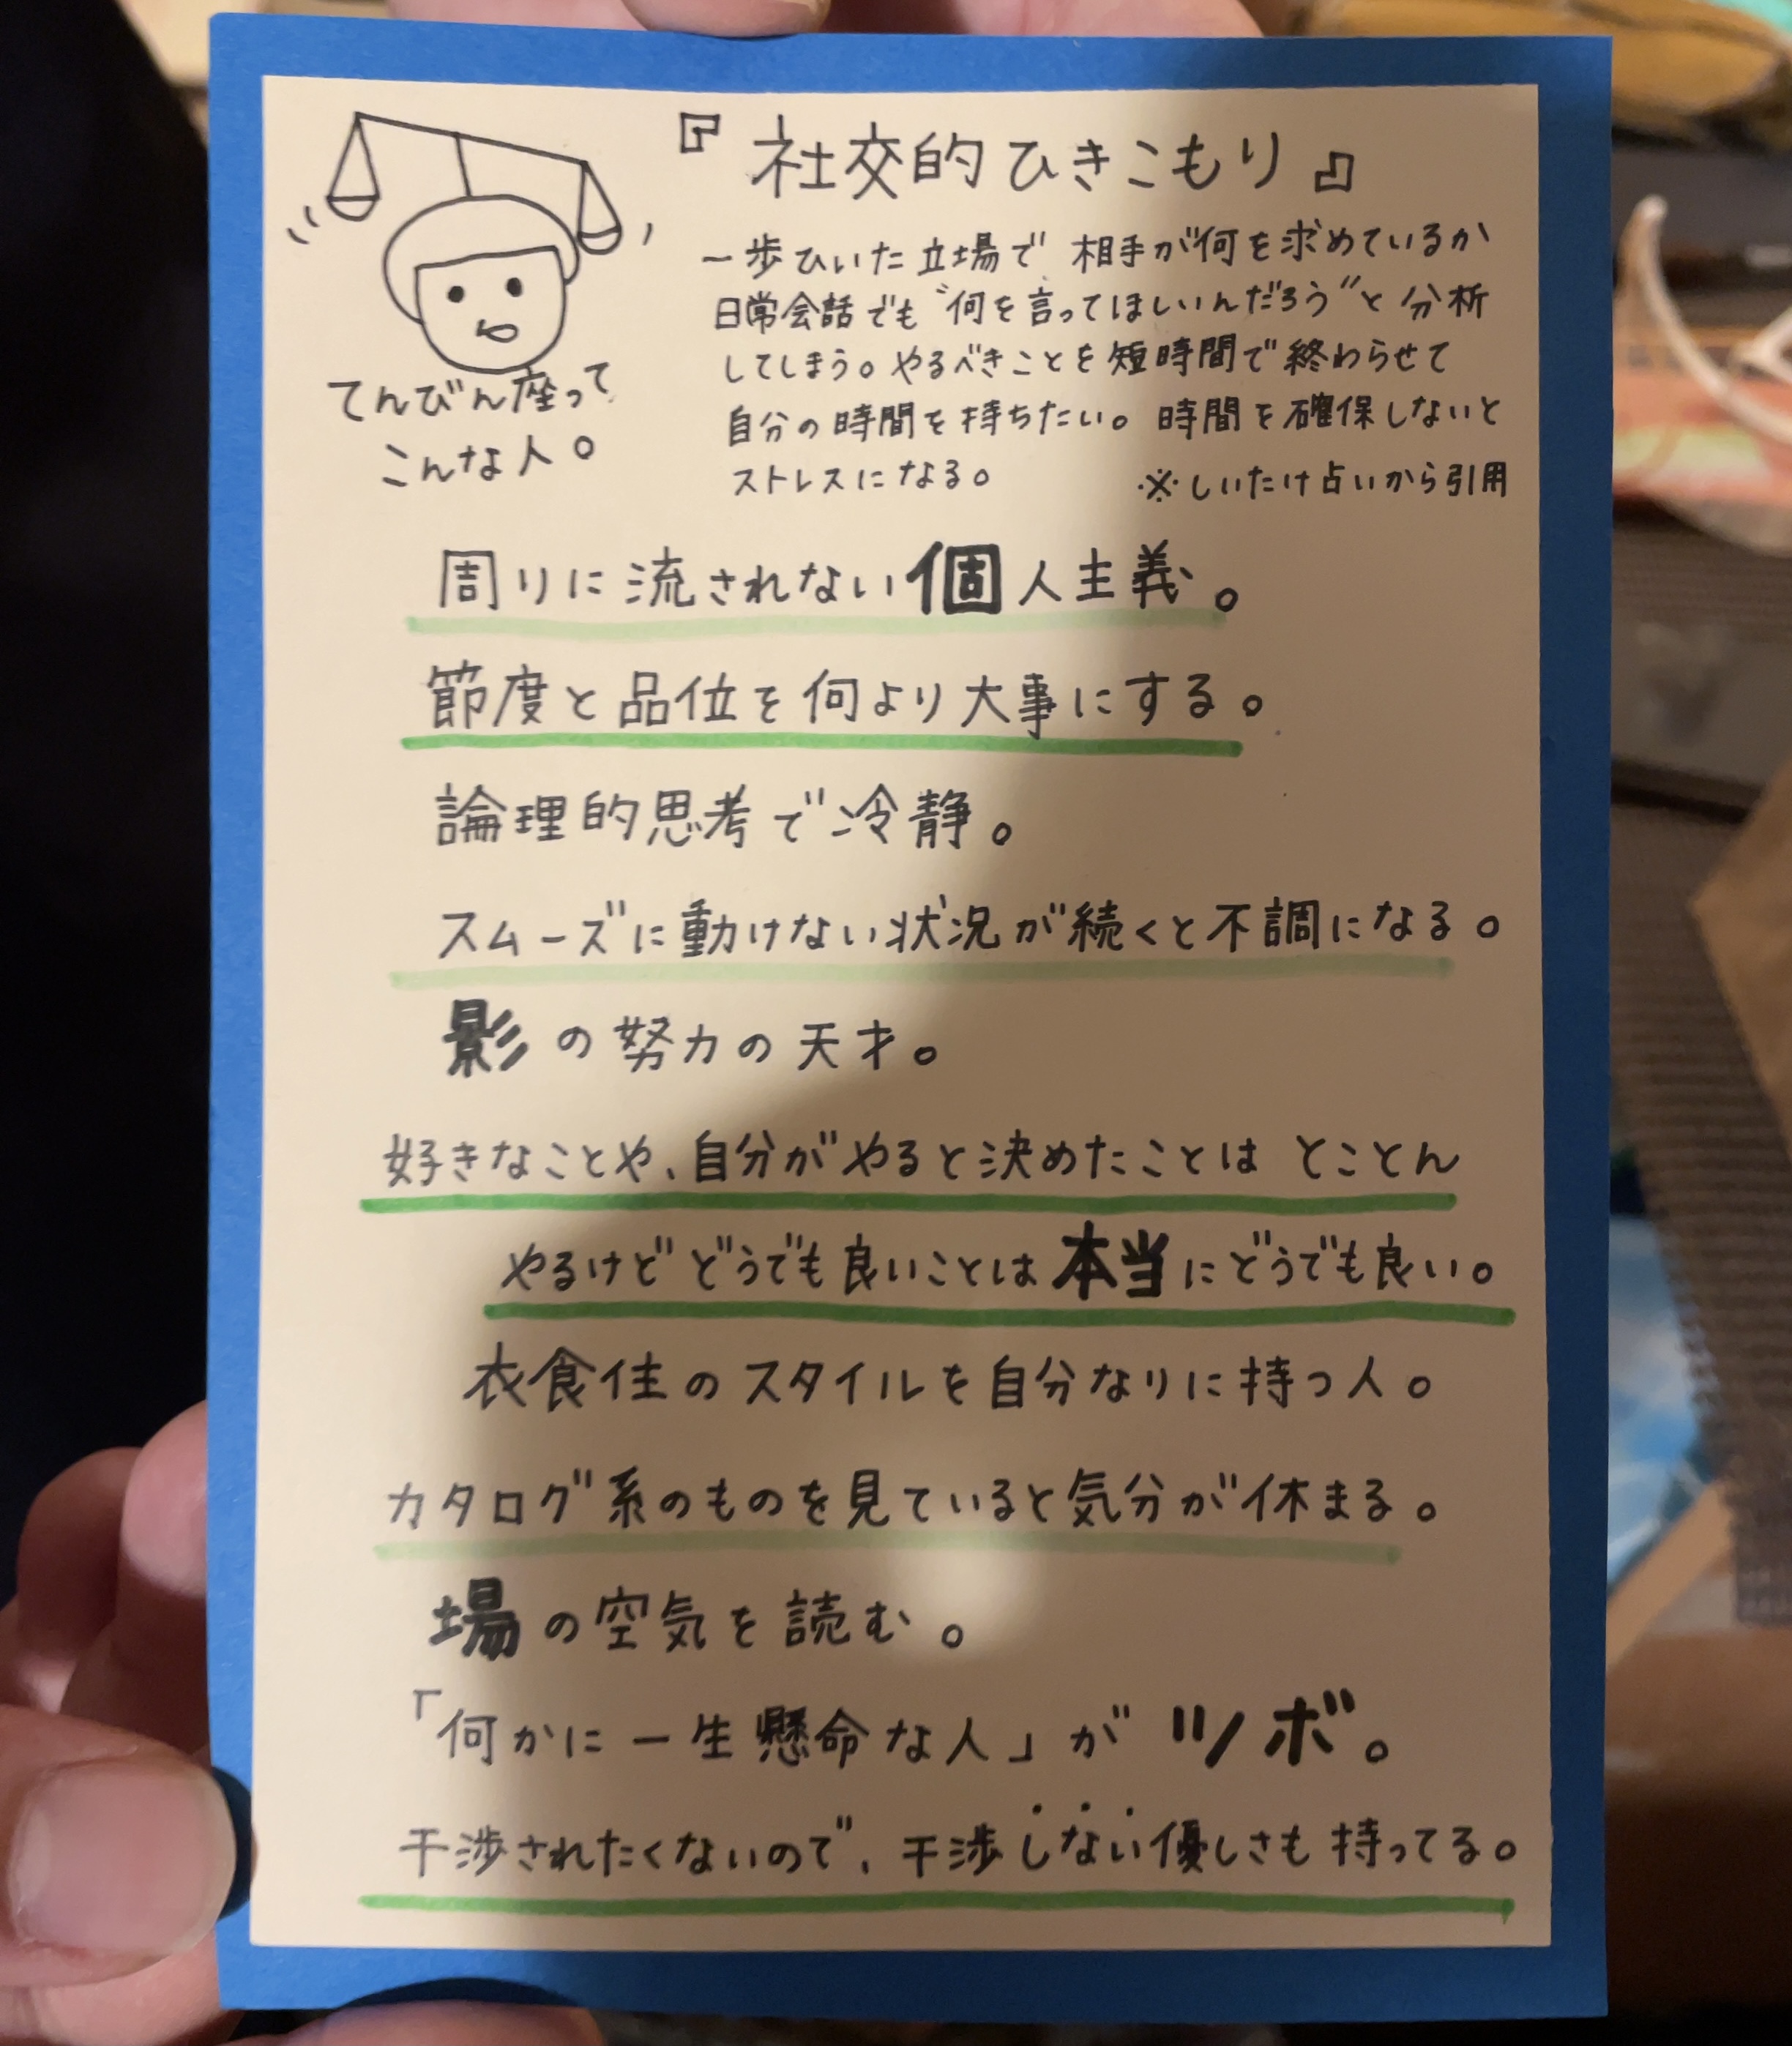 『社交的ひきこもり』
一歩ひいた立場で 相手が何を求めているか
日常会話でも〝何を言ってほしいんだろう〟と分析
してしまう。やるべきことを短時間で終わらせて
自分の時間を持ちたい。時間を確保しないと
ストレスになる。
※しいたけ占いから引用
てんびん座って
こんな人。
周りに流されない個人主義。
節度と品位を何より大事にする。
論理的思考で冷静。
スムーズに動けない状況が続くと不調になる。
影の努力の天才。
好きなことや、自分がやると決めたことは とことん
やるけど どうでも良いことは本当にどうでも良い。
衣食住のスタイルを自分なりに持つ人。
カタログ系のものを見ていると気分が休まる。
場の空気を読む。
「何かに一生懸命な人」がツボ。
干渉されたくないので、干渉しない優しさも持ってる。